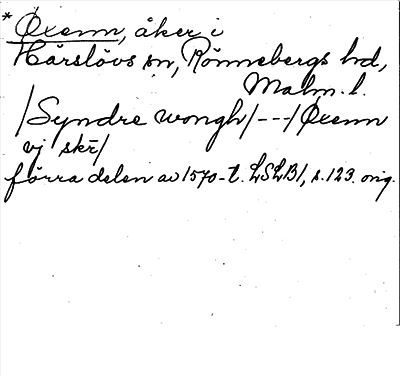 * Øxenn, åker i
Härslövs sn, Rönnebergs hd,
Malm. l.
/Syndre wongh/---/Øxenn
vj skr̄/
förra delen av 1570-t. LSLB1, s. 123. orig.